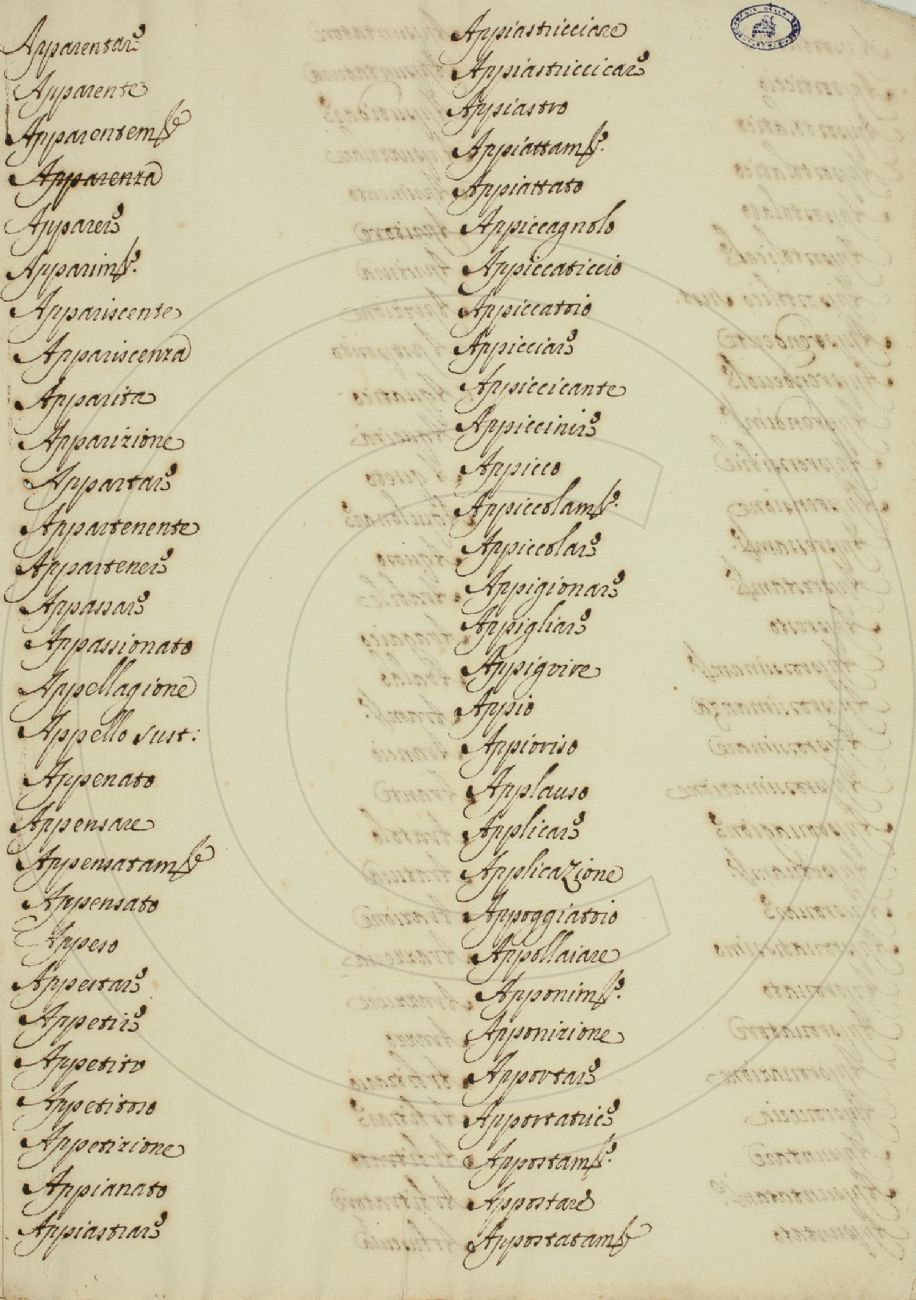 Apparentare
Apparente
Apparentemte
Apparenza
Apparere
Apparimto.
Appariscente
Appariscenza
Apparita
Apparizione
Appartare
Appartenente
Appartenere
Appassare
Appassionato
Appellagione
Appello sust:
Appenato
Appensare
Appensatamte
Appensato
Appeso
Appestare
Appetire
Appetito
Appetitoso
Appetizione
Appianato
Appiastrare
Appiastricciare
Appiastriccicare
Appiastro
Appiattamto.
Appiattato
Appiccagnolo
Appiccaticcio
Appiccatoio
Appicciare
Appiccicante
Appiccinire
Appicco
Appiccolamto.
Appiccolare
Appigionare
Appigliare
Appigrire
Appio
Appioriso
Applauso
Applicare
Applicazione
Appoggiatoio
Appollaiare
Apponimto.
Apponizione
Apportare
Apportatrice
Appostamto.
Appostare
Appostatamte